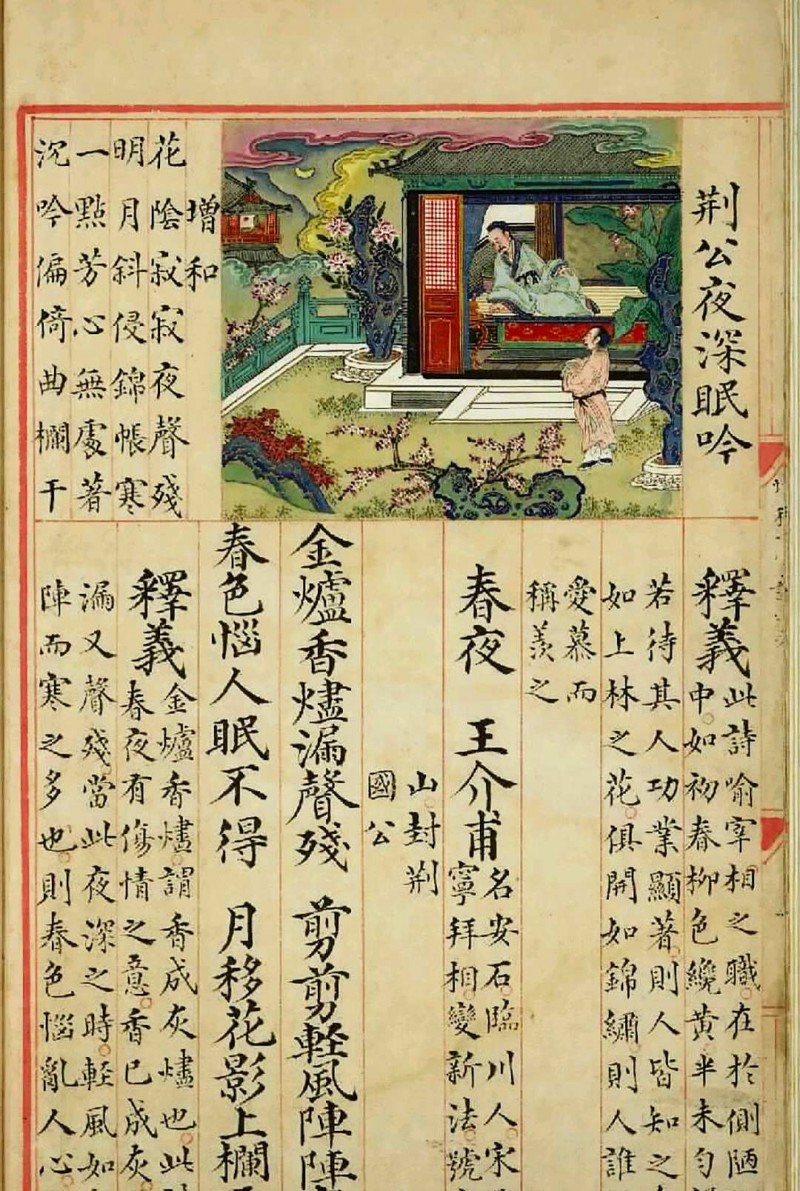 荆公夜深眠吟
增和
花陰寂寂夜聲殘
明月斜侵錦帳寒
一點芳心無處著
沉吟偏倚曲欄干
釋義
此詩喻宰相之職在於側陋
中如初春柳色纔黃半未勻
若待其人功業顯著則人皆知之
如上林之花俱開如錦繡則人誰
愛慕而
稱羨之
春夜 王介甫
名安石臨川人宋
寧拜相變新法號
山封荆
國公
金爐香燼漏聲殘 剪剪軽風陣陣
春色惱人眠不得 月移花影上欄
釋義
金爐香燼謂香成灰燼也此
春夜有傷情之意香已成灰
漏又聲殘當此夜深之時軽風如
陣而寒之多也則春色惱亂人心